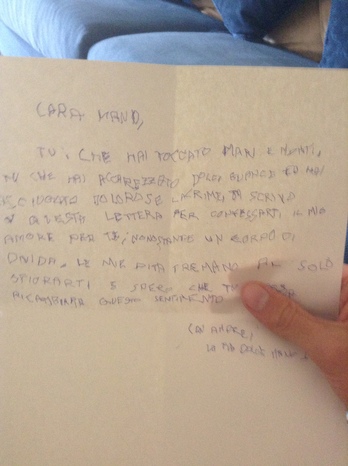 CARA MANO,
TU, CHE HAI TOCCATO MANI E
TU CHE HAI ACCAREZZATO DOLCI GUANCE ED HAI
ASCIUGATO DOLOROSE LACRIME, TI SCRIVO
QUESTA LETTERA PER CONFESSARTI IL MIO
AMORE PER TE, NONOSTANTE UN CORPO CI
DIVIDA. LE MIE DITA TREMANO AL SOLO
SFIORARTI E SPERO CHE TU
RICAMBIAR QUESTO SENTIMENTO
CON AMORE,
LA TUA DOLCE